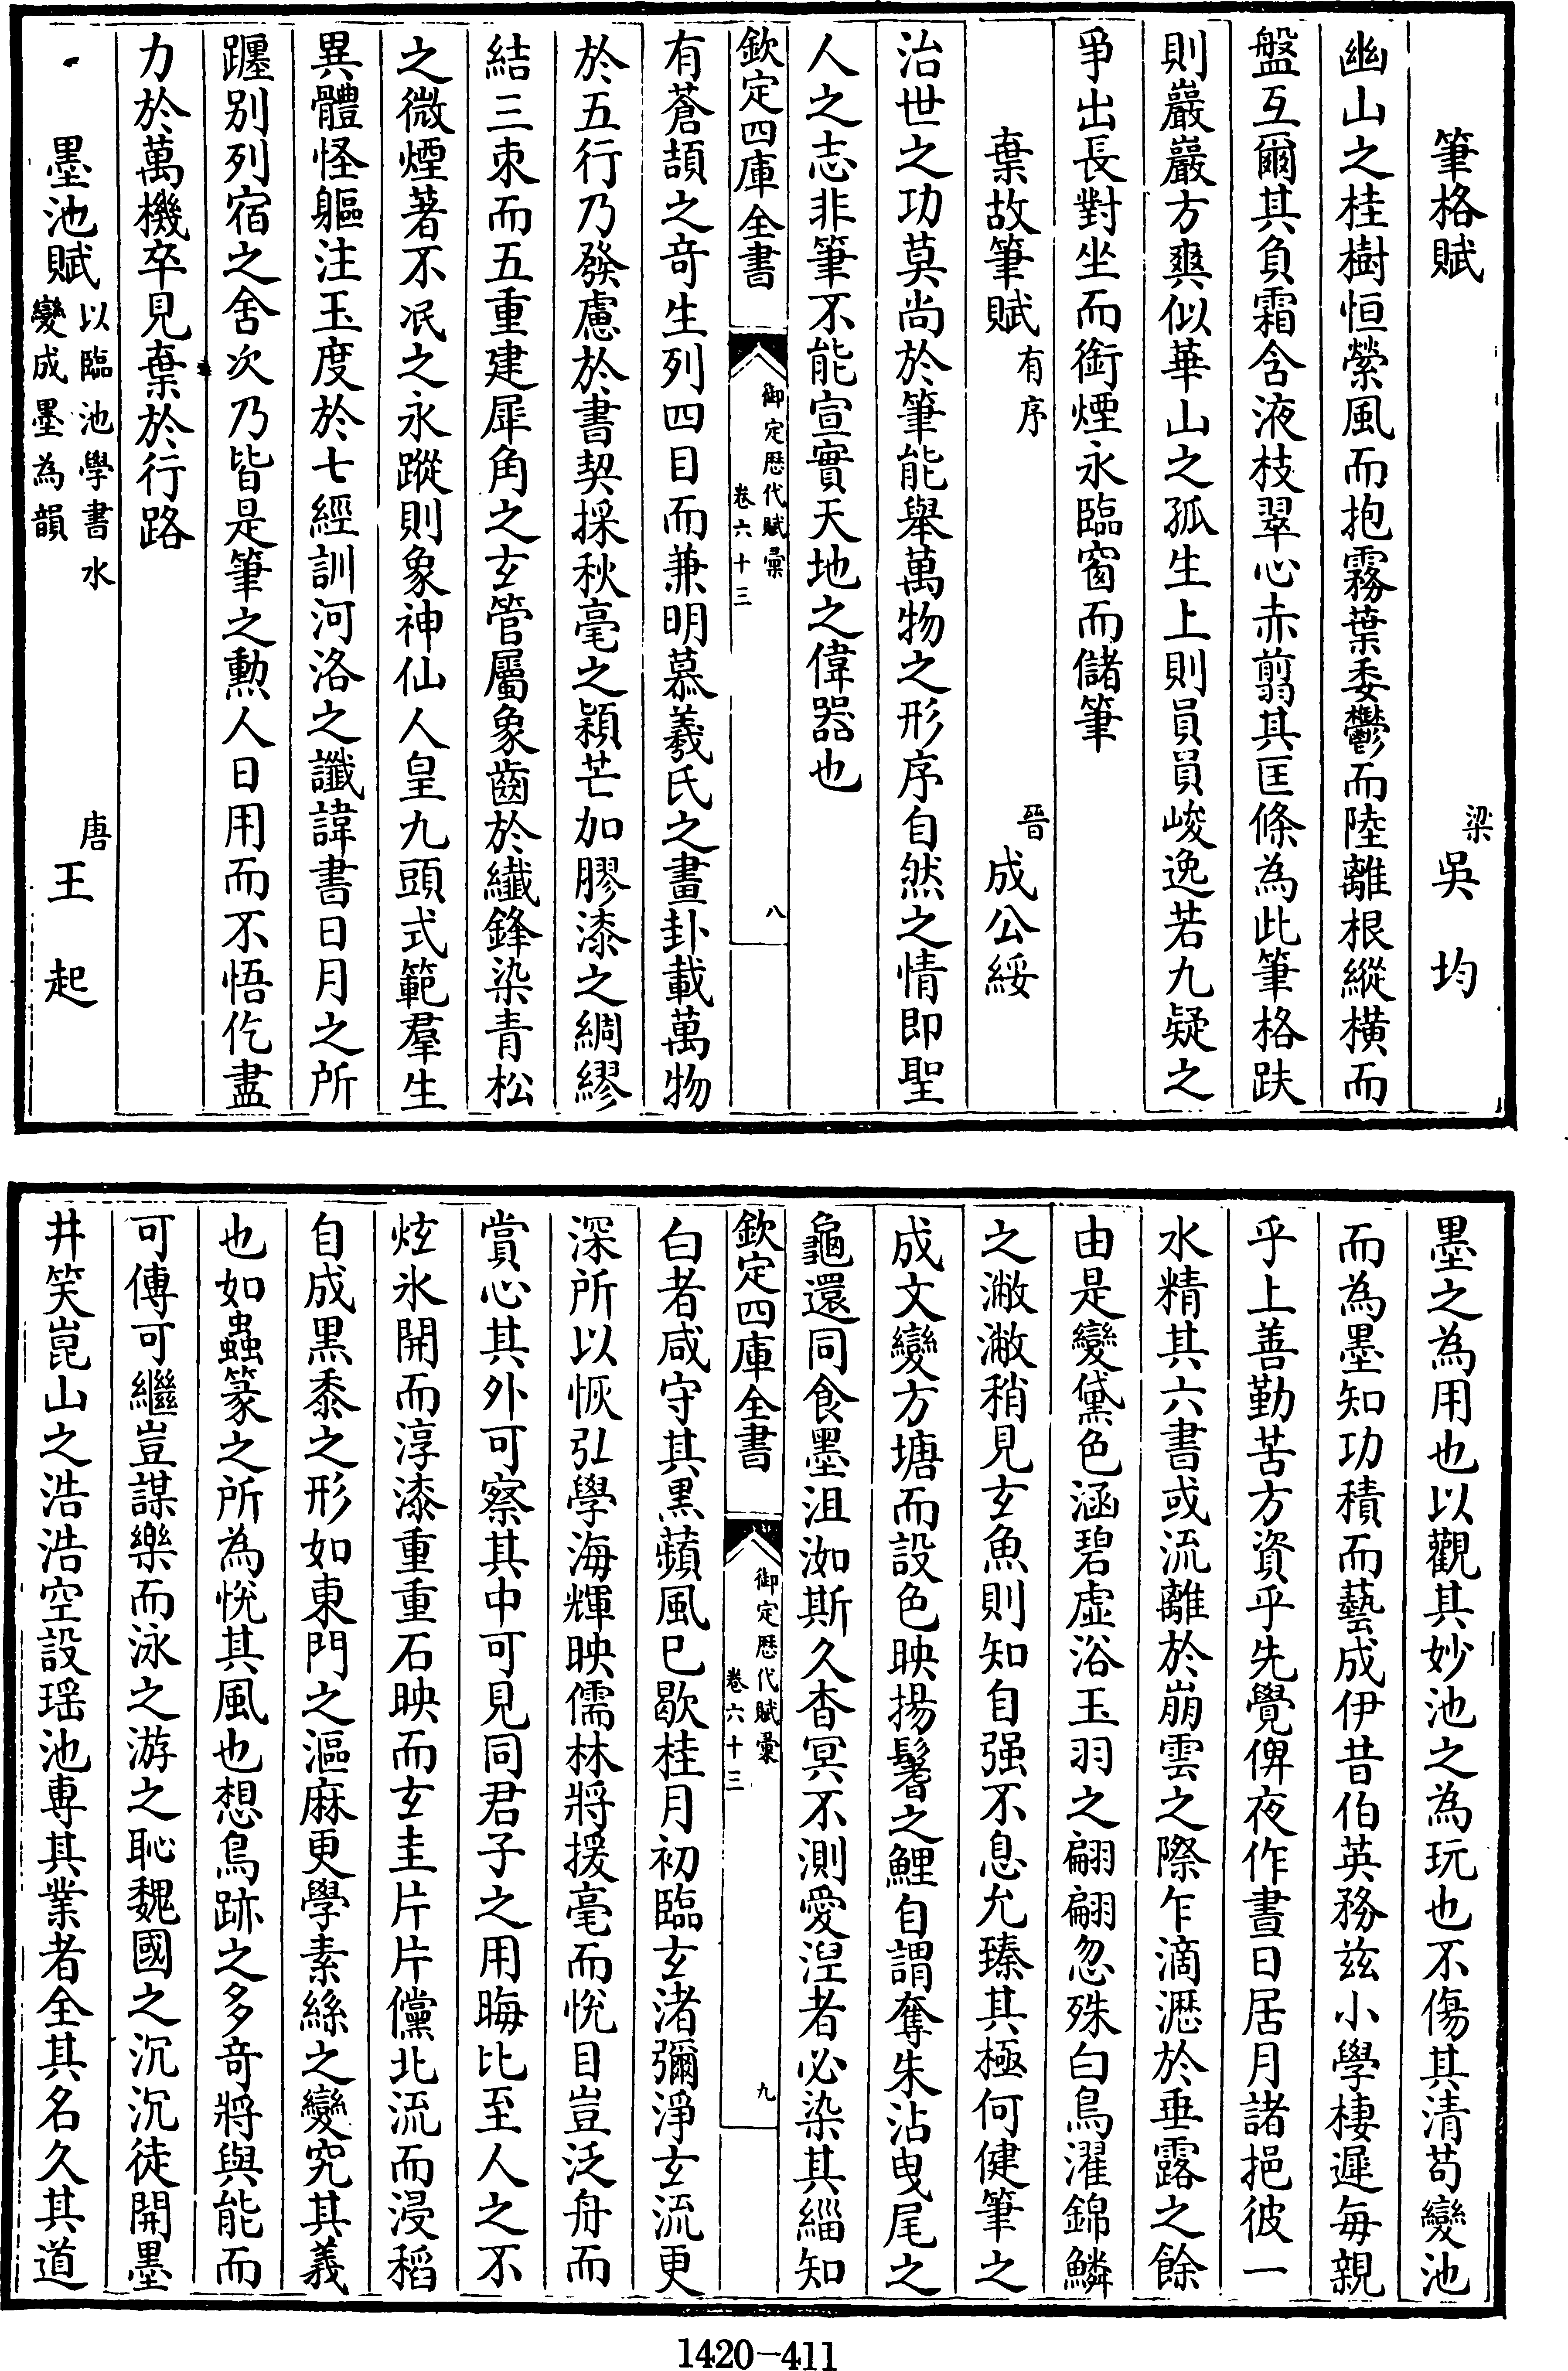 筆格賦 梁 吳均
幽山之桂樹恒縈風而抱霧葉委鬱而陸離根縱橫而
盤互爾其負霜含液枝翠心赤翦其匡條為此筆格趺
則巖巖方爽似華山之孤生上則員員峻逸若九疑之
爭出長對坐而銜煙永臨窗而儲筆
棄故筆賦 有序 晉 成公綏
治世之功莫尚於筆能舉萬物之形序自然之情即聖
人之志非筆不能宣實天地之偉器也
欽定四庫全書 御定歷代賦彙 卷六十三 八
有蒼頡之奇生列四目而兼明慕羲氏之畫卦載萬物
於五行乃發慮於書契採秋毫之穎芒加膠漆之綢繆
結三朿而五重建犀角之玄管屬象齒於纖鋒染青松
之微煙著不泯之永蹤則象神仙人皇九頭式範羣生
異體怪軀注玉度於七經訓河洛之讖諱書日月之所
躔別列宿之舍次乃皆是筆之勲人日用而不悟仡盡
力於萬機卒見棄於行路
墨池賦 以臨池學書水變成墨為韻 唐 王起
墨之為用也以觀其妙池之為玩也不傷其清苟變池
而為墨知功積而藝成伊昔伯英務兹小學棲遲每親
乎上善勤苦方資乎先覺俾夜作晝日居月諸挹彼一
水精其六書或流離於崩雲之際乍滴瀝於垂露之餘
由是變黛色涵碧虛浴玉羽之翩翩忽殊白鳥濯錦鱗
之潎潎稍見玄魚則知自强不息允臻其極何健筆之
成文變方塘而設色映揚鬐之鯉自謂奪朱沾曳尾之
龜還同食墨沮洳斯久杳冥不測愛涅者必染其緇知
欽定四庫全書 御定歷代賦彙 卷六十三 九
白者咸守其黑蘋風已歇桂月初臨玄渚彌淨玄流更
深所以恢弘學海輝映儒林將援毫而悅目豈泛舟而
賞心其外可察其中可見同君子之用晦比至人之不
炫氷開而淳漆重重石映而玄圭片片儻北流而浸稻
自成黑黍之形如東門之漚麻更學素絲之變究其義
也如蟲篆之所為悅其風也想鳥跡之多奇將與能而
可傳可繼豈謀樂而泳之游之恥魏國之沉沉徒開墨
井笑崑山之浩浩空設瑤池専其業者全其名久其道
1420-411